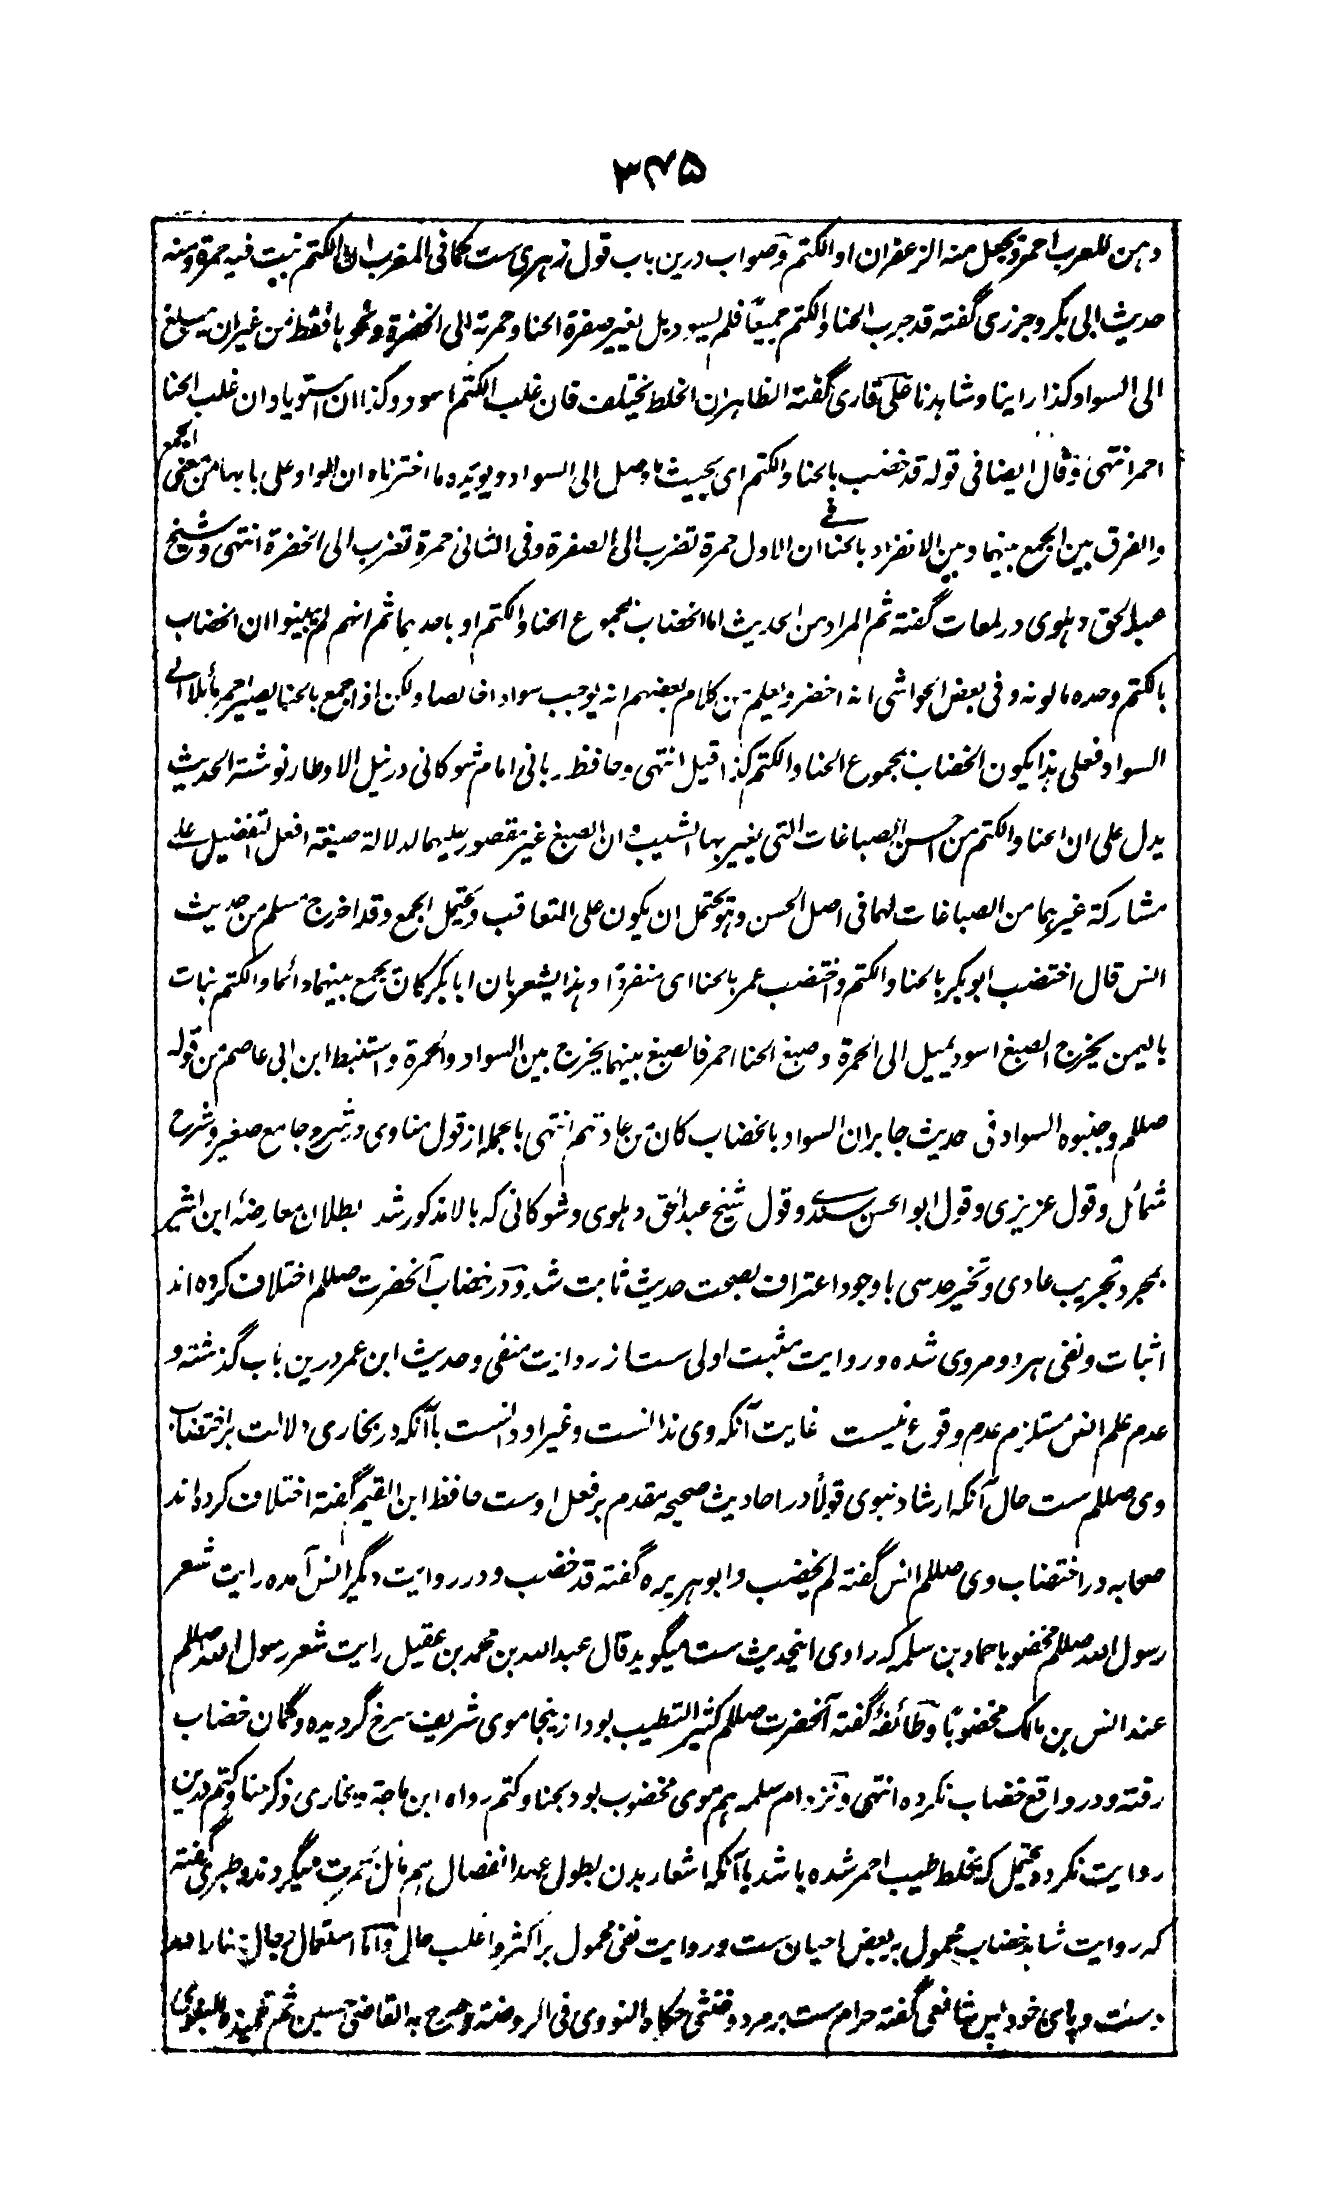 ۳۴۵
دهن للعرب احمر ویجعل منه الزعفران او الکتم وصواب درین باب قول زهری ست کما فی المغرب ان الکتم نبت فیه حمرة ومنه
حدیث ابی بکر وجزری گفته قد جرب الحنا والکتم جمیعًا فلم یسود بل یغیر صفرة الحنا وحمرته الی الخضرة ونحوها فقط من غیر ان یبلغ
الی السواد کذا راینا وشاهدنا علی قاری گفته الظاهر ان الخلط یختلف فان غلب الکتم اسود وکذا ان استویا وان غلب الحنا
احمر انتهی وقال ایضا فی قوله قد خضب بالحنا والکتم ای بحیث ما وصل الی السواد ویؤیده ما اخترناه ان الواو علی بابها من معنی الجمع
والفرق بین الجمع بینهما وبین الانفراد بالحنا ان فی الاول حمرة تضرب الی الصفرة وفی الثانی حمرة تضرب الی الخضرة انتهی وشیخ
عبد الحق دهلوی در لمعات گفته ثم المراد من الحدیث اما الخضاب بمجموع الحنا والکتم او باحدهما ثم انهم لم یبینوا ان الخضاب
بالکتم وحده ما لونه وفی بعض الحواشی انه اخضر ویعلم من کلام بعضهم انه یوجب سوادا خالصا ولکن اذا جمع بالحنا یصیر احمر مائلا الی
السواد فعلی هذا یکون الخضاب بمجموع الحنا والکتم کذا قیل انتهی وحافظ ربانی امام شوکانی در نیل الاوطار نوشته الحدیث
یدل علی ان الحنا والکتم من احسن الصباغات التی یغیر بها الشیب وان الصبغ غیر مقصور علیهما لدلالة صیغة افعل التفضیل علی
مشارکة غیرهما من الصباغات لهما فی اصل الحسن وهو یحتمل ان یکون علی التعاقب ویحتمل الجمع وقد اخرج مسلم من حدیث
انس قال اختضب ابو بکر بالحنا والکتم واختضب عمر بالحنا ای منفردًا وهذا یشعر بان ابا بکر کان یجمع بینهما دائما والکتم نبات
بالیمن یخرج الصبغ اسود یمیل الی الحمرة وصبغ الحنا احمر فالصبغ بینهما یخرج بین السواد والحمرة واستنبط ابن ابی عاصم من قوله
صللم وجنبوه السواد فی حدیث جابر ان السواد بالخضاب کان من عادتهم انتهی بالجمله از قول مناوی در شرح جامع صغیر وشرح
شمائل وقول عزیزی وقول ابو الحسن سندی وقول شیخ عبد الحق دهلوی وشوکانی که بالا مذکور شد بطلان معارضهٔ ابن اثیر
بمجرد تجریب عادی وتخیر حدسی باوجود اعتراف بصحت حدیث ثابت شد ودر خضاب آنحضرت صللم اختلاف کرده اند
اثبات ونفی هر دو مروی شده وروایت مثبت اولی ست از روایت منفی وحدیث ابن عمر درین باب گذشته و
عدم علم انس مستلزم عدم وقوع نیست غایت آنکه وی ندانست وغیر او دانست با آنکه در بخاری دلالت بر اختضاب
وی صللم ست حال آنکه ارشاد نبوی قولاً در احادیث صحیحه مقدم بر فعل اوست حافظ ابن القیم گفته اختلاف کرده اند
صحابه در اختضاب وی صللم انس گفته لم یخضب وابو هریره گفته قد خضب ودر روایت دیگر از انس آمده رایت شعر
رسول الله صللم مخضوبا حماد بن سلمه که راوی اینحدیث ست میگوید قال عبدالله بن محمد بن عقیل رایت شعر رسول الله صللم
عند انس بن مالک مخضوبًا وطائفهٔ گفته آنحضرت صللم کثیر التطیب بود از ینجا موی شریف سرخ گردیده وگمان خضاب
رفته ودر واقع خضاب نکرده انتهی ونزد ام سلمه هم موی مخضوب بود بحنا وکتم رواه ابن ماجة وبخاری ذکر حنا وکتم درین
روایت نکرد ویحتمل که بخلط طیب احمر شده باشد یا آنکه اشعار بدن بطول عهد انفصال هم مائل بحمرت میگردند وطبری گفته
که روایت شاهد خضاب محمول بر بعض احیان ست وروایت نفی محمول بر اکثر واغلب حال واما استعمال رجال حنا را در
دست وپای خود پس شافعی گفته حرام ست بر مرد وخنثی حکاه النووی فی الروضة وصرح به القاضی حسین ثم تلمیذه البغوی